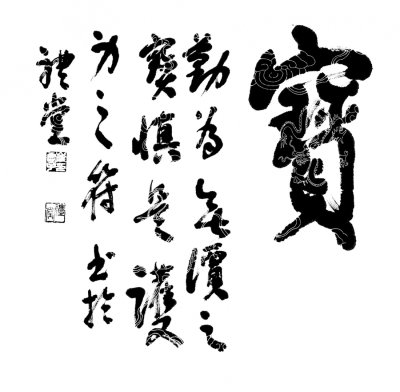 寶
勤為無價之
寶慎是護
身之符書於
禮堂